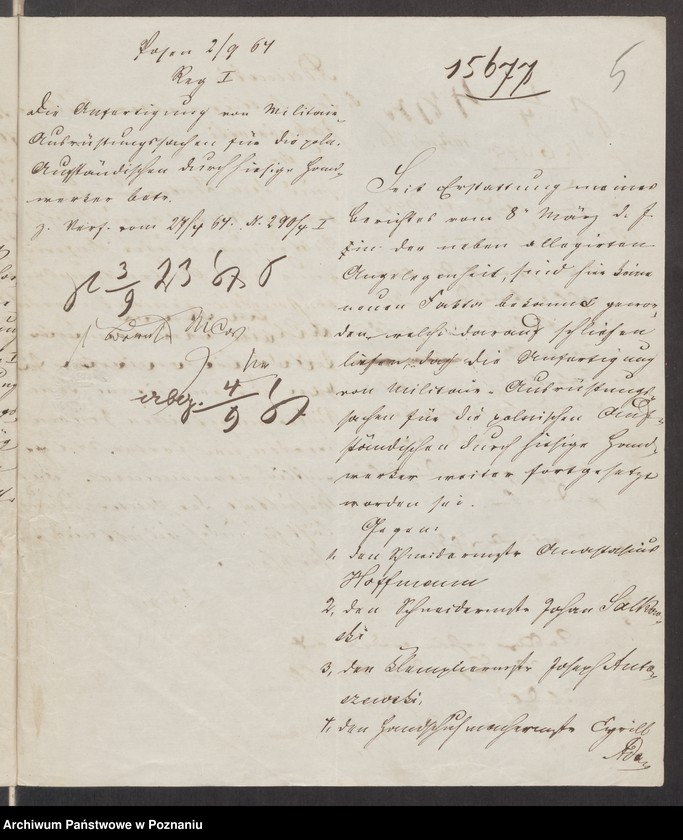 Posen 2/9 64
Reg I
Die Anfertigung von Militair-
Ausrüstungssachen für die poln.
Aufständischen durch hiesige Hand-
werker betr.
z. Verf. vom 27/4 64. N. 290/4 I
3/9 23
4/9
15677
5
Seit Erstattung meines
Berichtes vom 8 März d. J.
in der neben allegirten
Angelegenheit, sind hier keine
neuen Fakta bekannt gewor-
den, welche darauf schließen
ließen, daß die Anfertigung
von Militair-Ausrüstungs-
sachen für die polnischen Auf-
ständischen durch hiesige Hand-
werker weiter fortgesetzt
worden sei.
Gegen:
1. den Schneidermstr Anastasius
Hoffmann
2, den Schneidermstr Johan Salkow-
ski
3, den Klempnermstr Joseph Anto-
szewski,
4, den Handschuhmachermstr Cyrill
Adam
Archiwum Państwowe w Poznaniu